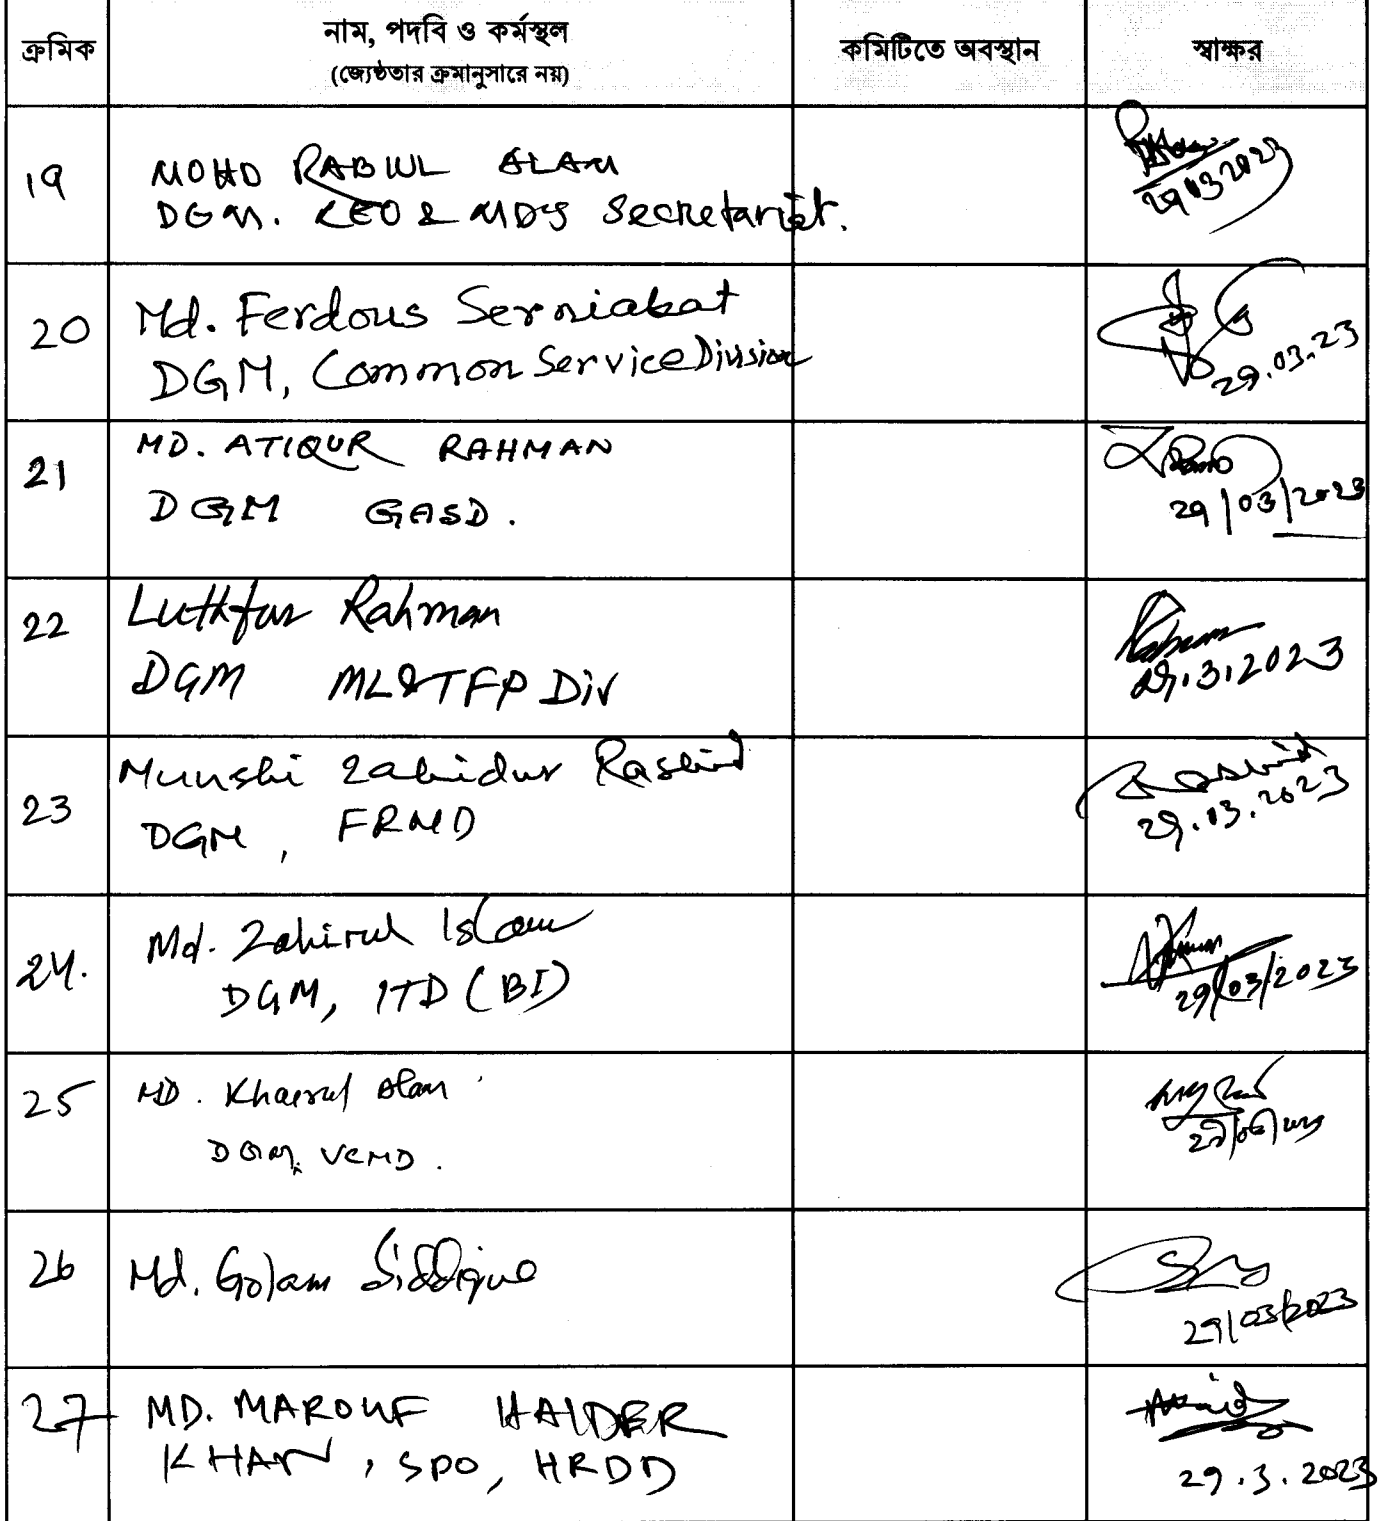 ক্রমিক
নাম, পদবি ও কর্মস্থল
(জ্যেষ্ঠতার ক্রমানুসারে নয়)
কমিটিতে অবস্থান
স্বাক্ষর
19
MOHD RABIUL ALAM
DGM. CEO & MD's Secretariat.
29 03 2023
20
Md. Ferdous Serniabat
DGM, Common Service Division
29.03.23
21
MD. ATIQUR RAHMAN
DGM GASD.
29/03/2023
22
Luthfur Rahman
DGM ML&TFP Div
Rahman
29.3.2023
23
Munshi Zahidur Rashid
DGM, FRMD
Rashid
29.03.2023
24.
Md. Zahirul Islam
DGM, ITD (BI)
29/03/2023
25
MD. Khairul Alam
DGM, VCMD.
26
Md. Golam Siddique
29/03/2023
27
MD. MAROUF HAIDER
KHAN, SPO, HRDD
29.3.2023